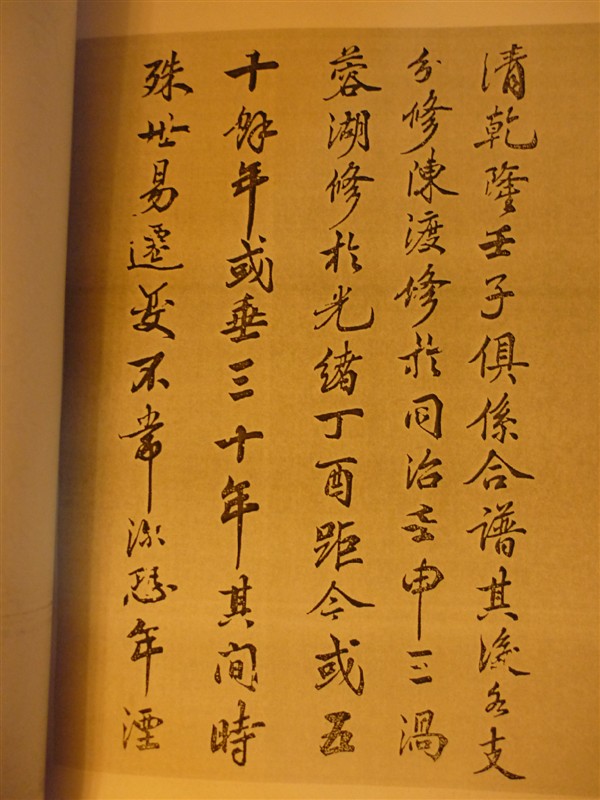 清乾隆壬子俱係合譜其後各支
分修陳渡修於同治壬申三渦
蓉湖修於光緒丁酉距今或五
十餘年或垂三十年其间時
殊世易遷變不常深懸年湮